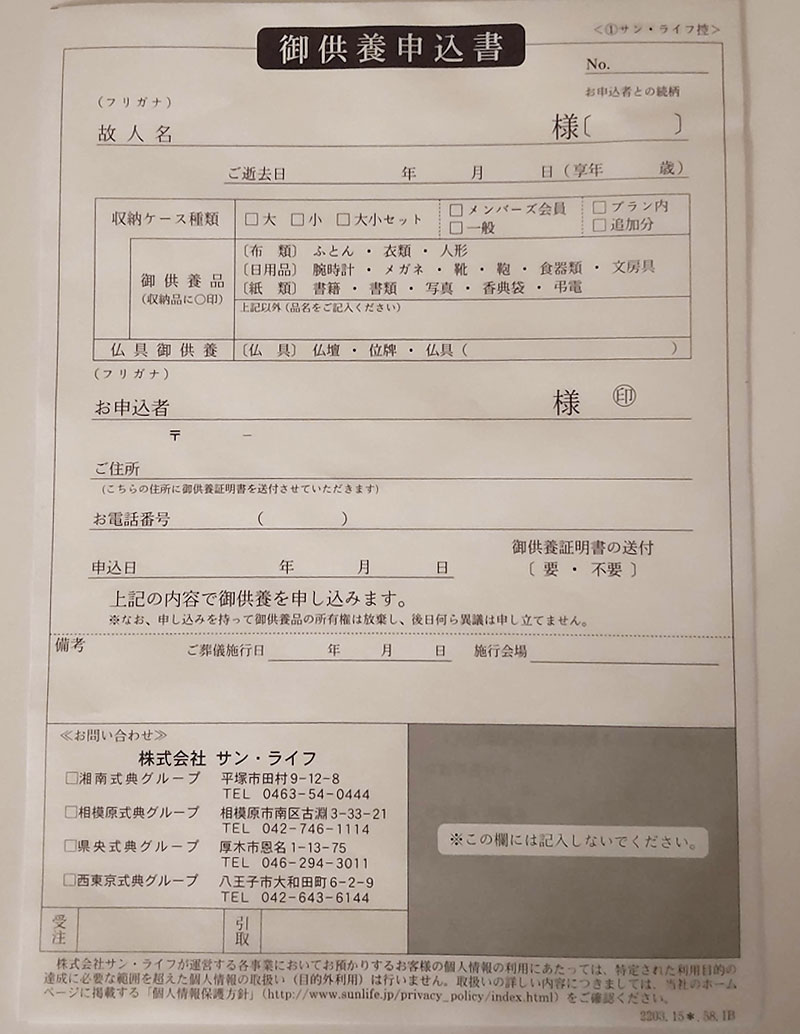 ＜①サン・ライフ控＞
御供養申込書
No.
お申込者との続柄
（フリガナ）
故人名 様〔 〕
ご逝去日 年 月 日（享年 歳）
収納ケース種類 □大 □小 □大小セット □メンバーズ会員 □プラン内
□一般 □追加分
御供養品
（収納品に○印）
〔布 類〕 ふとん ・ 衣類 ・ 人形
〔日用品〕 腕時計 ・ メガネ ・ 靴 ・ 鞄 ・ 食器類 ・ 文房具
〔紙 類〕 書籍 ・ 書類 ・ 写真 ・ 香典袋 ・ 弔電
上記以外（品名をご記入ください）
仏具御供養 〔仏 具〕 仏壇 ・ 位牌 ・ 仏具（ ）
（フリガナ）
お申込者 様 ㊞
〒 －
ご住所
（こちらの住所に御供養証明書を送付させていただきます）
お電話番号 （ ）
御供養証明書の送付
申込日 年 月 日 〔 要 ・ 不要 〕
上記の内容で御供養を申し込みます。
※なお、申し込みを持って御供養品の所有権は放棄し、後日何ら異議は申し立てません。
備考 ご葬儀施行日 年 月 日 施行会場
≪お問い合わせ≫
株式会社 サン・ライフ
□湘南式典グループ 平塚市田村9-12-8
TEL 0463-54-0444
□相模原式典グループ 相模原市南区古淵3-33-21
TEL 042-746-1114
□県央式典グループ 厚木市恩名1-13-75
TEL 046-294-3011
□西東京式典グループ 八王子市大和田町6-2-9
TEL 042-643-6144
※この欄には記入しないでください。
受注 引取
株式会社サン・ライフが運営する各事業においてお預かりするお客様の個人情報の利用にあたっては、特定された利用目的の
達成に必要な範囲を超えた個人情報の取扱い（目的外利用）は行いません。取扱いの詳しい内容につきましては、当社のホーム
ページに掲載する「個人情報保護方針」（http://www.sunlife.jp/privacy_policy/index.html）をご確認ください。
2203.15＊.58.1B